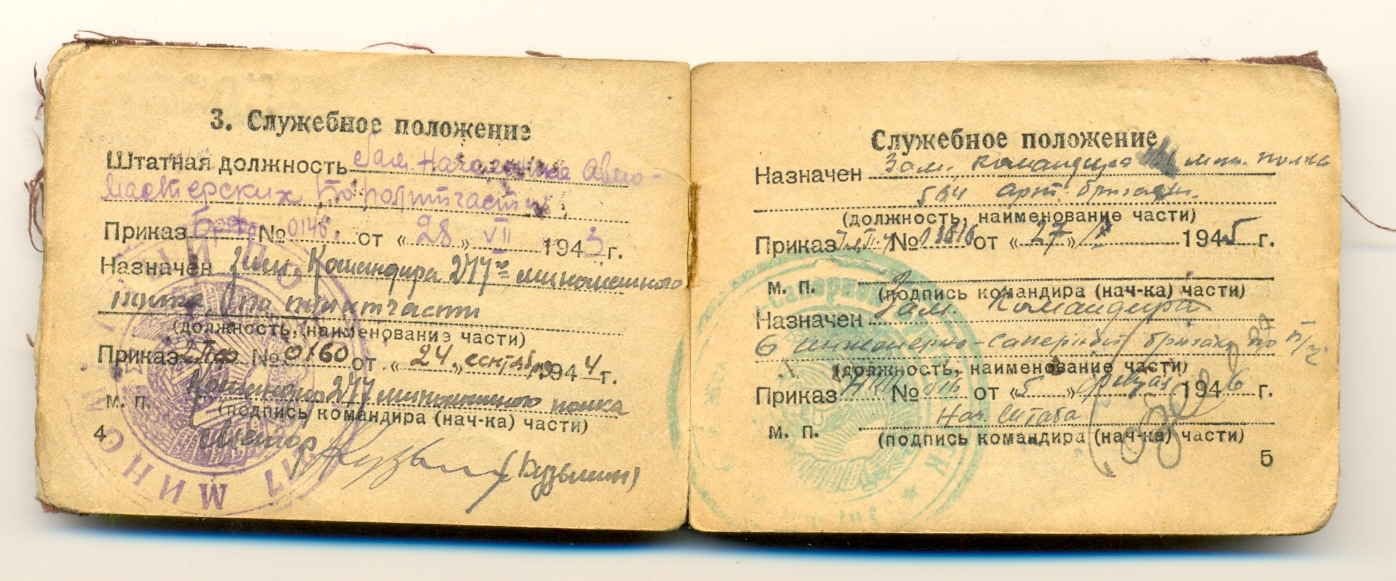 3. Служебное положение
Штатная должность Зам. Начальника Авто-
мастерских по политчасти
Приказ № 0146. от «28» VII 1943 г.
Назначен Зам. Командира 277го минометного
полка по политчасти
(должность, наименование части)
Приказ № 0160 от «24» сентября 1944 г.
Командир 277 минометного полка
М. П. (подпись командира (нач-ка) части)
Майор (Кузьмин)
4
Служебное положение
Назначен Зам. Командира мин. полка
564 арт. бригады.
(должность, наименование части)
Приказ № от «27» 1945 г.
М. П. (подпись командира (нач-ка) части)
Назначен Зам. Командира
6 инженерно-саперной бригады по п/ч
(должность, наименование части)
Приказ № 016 от «5» февраля 1946 г.
Нач. штаба
М. П. (подпись командира (нач-ка) части)
5